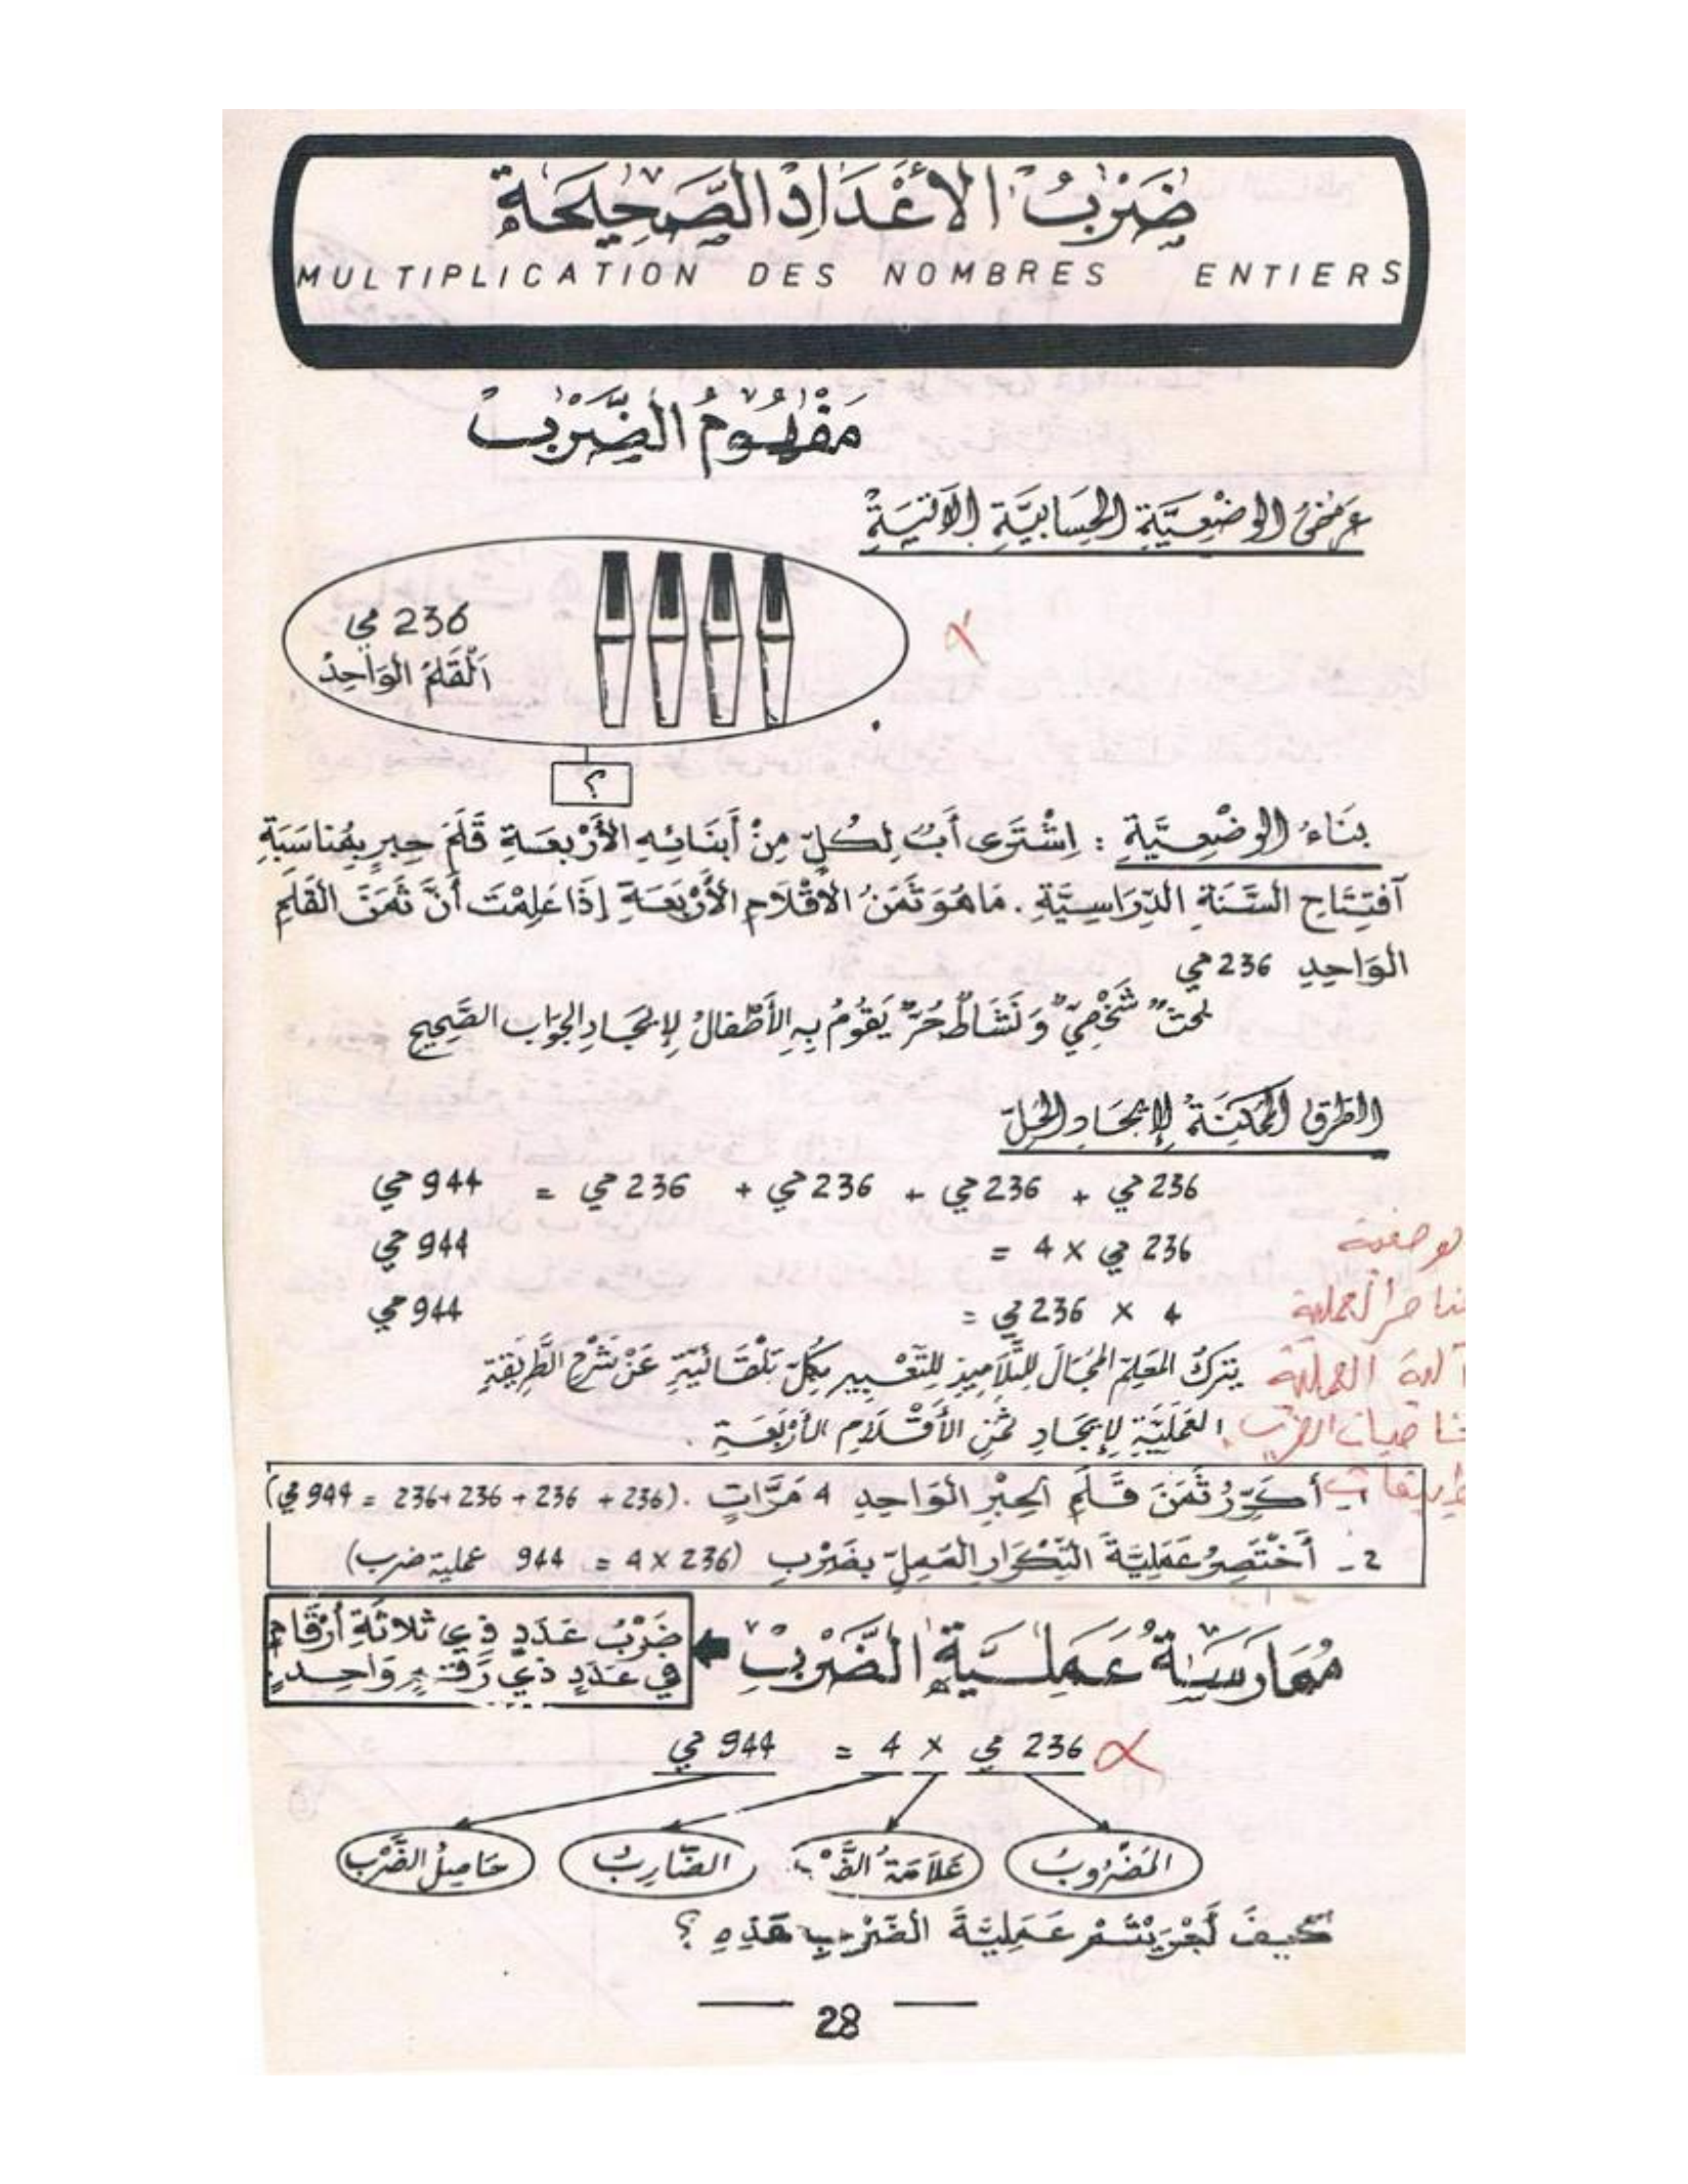 ضَرْبُ الأَعْدَادِ الصَّحِيحَةِ
MULTIPLICATION DES NOMBRES ENTIERS
مَفْهُومُ الضَّرْبِ
عرض الوضْعِيَّةِ الحِسَابِيَّةِ الآتِيَةِ
236 مي
اَلْقَلَمُ الوَاحِدُ
؟
بِنَاءُ الوضْعِيَّةِ : اِشْتَرَى أَبٌ لِكُلِّ مِنْ أَبْنَائِهِ الأَرْبَعَةِ قَلَمَ حِبرٍ بِمُنَاسَبَةِ
آفتِتَاحِ السَّنَةِ الدِّرَاسِيَّةِ . مَا هُوَ ثَمَنُ الأَقْلَامِ الأَرْبَعَةِ إِذَا عَلِمْتَ أَنَّ ثَمَنَ القَلَمِ
الوَاحِدِ 236 مي
بحثٌ شَخْصِيٌّ وَنَشَاطٌ حُرٌّ يَقُومُ بِهِ الأَطْفَالُ لِإِيجَادِ الجوَابِ الصَّحِيحِ
الطرقُ المُمْكِنَةُ لِإِيجَادِ الحَلِّ
236 مي + 236 مي + 236 مي + 236 مي = 944 مي
236 مي × 4 = 944 مي
4 × 236 مي = 944 مي
يَتركُ المعَلِّمُ المجَالَ لِلتَّلَامِيذِ لِلتَّعْبِيرِ بِكُلِّ تِلْقَائِيَّةٍ عَنْ شَرْحِ الطَّرِيقَةِ
العَمَلِيَّةِ لِإِيجَادِ ثَمَنِ الأَقْلَامِ الأَرْبَعَةِ .
آلية العملية
1 - أُكَرِّرُ ثَمَنَ قَلَمِ الحِبْرِ الوَاحِدِ 4 مَرَّاتٍ . (236 + 236 + 236 + 236 = 944 مي)
2 - أَخْتَصِرُ عَمَلِيَّةَ التِّكْرَارِ المُمِلِّ بِضَرْبِ (236 × 4 = 944 عملية ضرب)
مُمَارَسَةُ عَمَلِيَّةِ الضَّرْبِ
ضَرْبُ عَدَدٍ ذِي ثلاثَةِ أَرْقَامٍ
فِي عَدَدٍ ذِي رَقْمٍ وَاحِدٍ
236 مي × 4 = 944 مي
المَضْرُوبُ
عَلَامَةُ الضَّرْبِ
الضَّارِبُ
حَاصِلُ الضَّرْبِ
كَيفَ أَجْرَيْتُمْ عَمَلِيَّةَ الضَّرْبِ هَذِهِ ؟
28